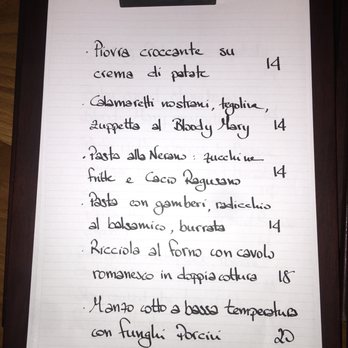 · Piovra croccante su
crema di patate 14
· Calamaretti nostrani, tegoline,
zuppetta al Bloody Mary 14
· Pasta alla Nerano : zucchine
fritte e Cacio Ragusano 14
· Pasta con gamberi, radicchio
al balsamico, burrata 14
· Ricciola al forno con cavolo
romanesco in doppia cottura 18
· Manzo cotto a bassa temperatura
con funghi Porcini 20